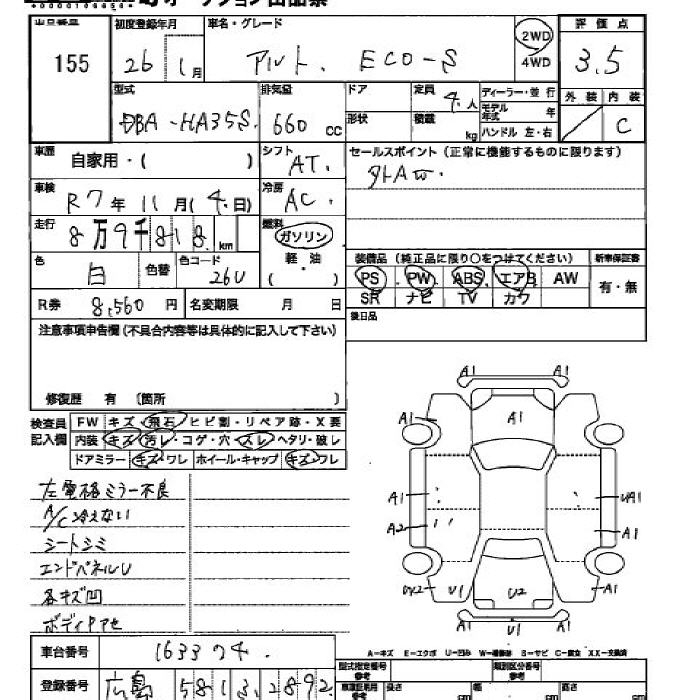 出品番号 初度登録年月 車名・グレード 評価点
155 26年 1月 アルト. ECO-S 2WD 4WD 3.5
型式 排気量 ドア 定員 ディーラー・並行 外装 内装
DBA-HA35S. 660cc 形状 積載 4.人 kg モデル年式 年 ハンドル 左・右 C
車歴 自家用・( ) シフト AT. セールスポイント(正常に機能するものに限ります)
車検 R7年11月(4.日) 冷房 AC.
走行 8万9千818.km 燃料 ガソリン 軽油 ( )
色 白 色替 色コード 26U
装備品(純正品に限り○をつけてください) 新車保証書
PS PW ABS エアB AW 有・無
SR ナビ TV カワ
R券 8,560円 名変期限 月 日 後日品
注意事項申告欄(不具合内容等は具体的に記入して下さい)
修復歴 有 〔箇所 〕
検査員記入欄
FW キズ・飛石・ヒビ割・リペア跡・X要
内装 キズ・汚レ・コゲ・穴・スレ・ヘタリ・破レ
ドアミラー キズ・ワレ ホイール・キャップ キズ・ワレ
左電格ミラー不良
A/C冷えない
シートシミ
エンドパネルU
各キズ凹
ボディアセ
A1 A1
A1 A1 A1
A1 UA1
A2 A1
U1 U2 A1
A1 U1 A1
A-キズ E-エクボ U-凹み W-補修跡 S-サビ C-腐食 XX-交換済
車台番号 163374.
登録番号 広島 581 3 2892
型式指定番号 参考 類別区分番号 参考
長さ cm 幅 cm 高さ cm